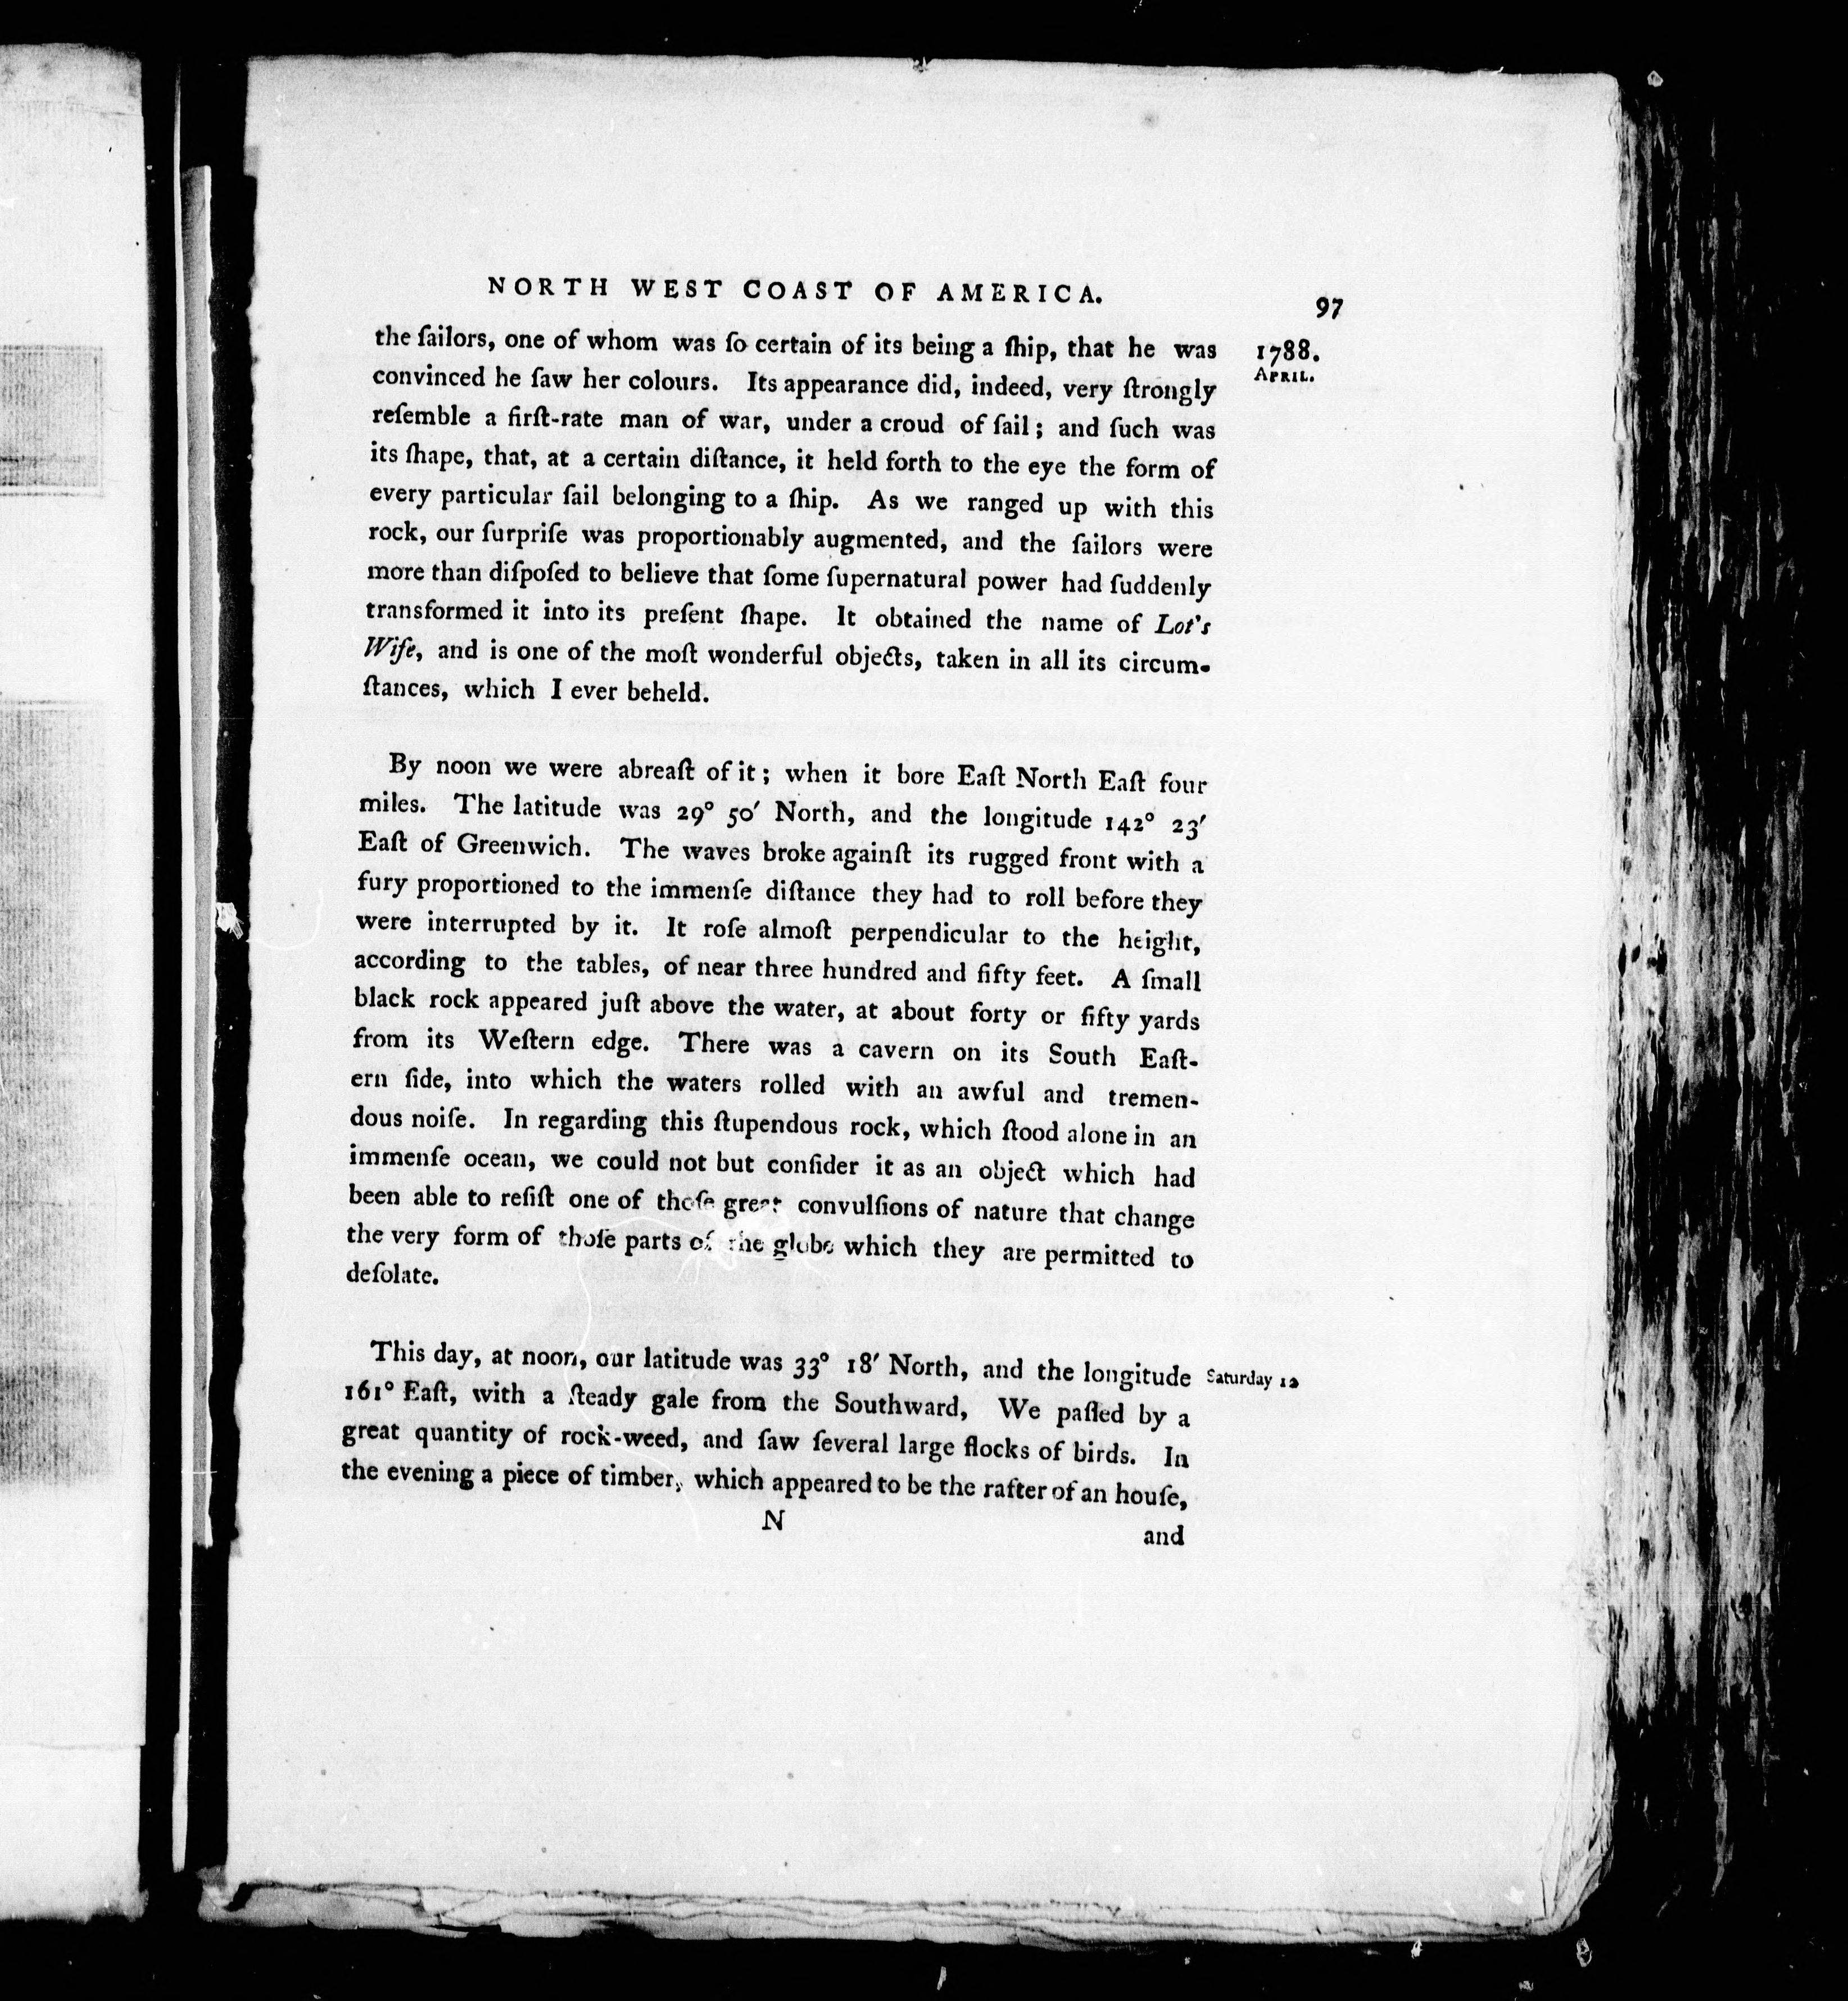 NORTH WEST COAST OF AMERICA.
97
1788.
APRIL.
the ſailors, one of whom was ſo certain of its being a ſhip, that he was
convinced he ſaw her colours. Its appearance did, indeed, very ſtrongly
reſemble a firſt-rate man of war, under a croud of ſail; and ſuch was
its ſhape, that, at a certain diſtance, it held forth to the eye the form of
every particular ſail belonging to a ſhip. As we ranged up with this
rock, our ſurpriſe was proportionably augmented, and the ſailors were
more than diſpoſed to believe that ſome ſupernatural power had ſuddenly
transformed it into its preſent ſhape. It obtained the name of Lot's
Wife, and is one of the moſt wonderful objects, taken in all its circum-
ſtances, which I ever beheld.
By noon we were abreaſt of it; when it bore Eaſt North Eaſt four
miles. The latitude was 29° 50′ North, and the longitude 142° 23′
Eaſt of Greenwich. The waves broke againſt its rugged front with a
fury proportioned to the immenſe diſtance they had to roll before they
were interrupted by it. It roſe almoſt perpendicular to the height,
according to the tables, of near three hundred and fifty feet. A ſmall
black rock appeared juſt above the water, at about forty or fifty yards
from its Weſtern edge. There was a cavern on its South Eaſt-
ern ſide, into which the waters rolled with an awful and tremen-
dous noiſe. In regarding this ſtupendous rock, which ſtood alone in an
immenſe ocean, we could not but conſider it as an object which had
been able to reſiſt one of thoſe great convulſions of nature that change
the very form of thoſe parts of the globe which they are permitted to
deſolate.
This day, at noon, our latitude was 33° 18′ North, and the longitude
Saturday 12
161° Eaſt, with a ſteady gale from the Southward, We paſſed by a
great quantity of rock-weed, and ſaw ſeveral large flocks of birds. In
the evening a piece of timber, which appeared to be the rafter of an houſe,
N
and